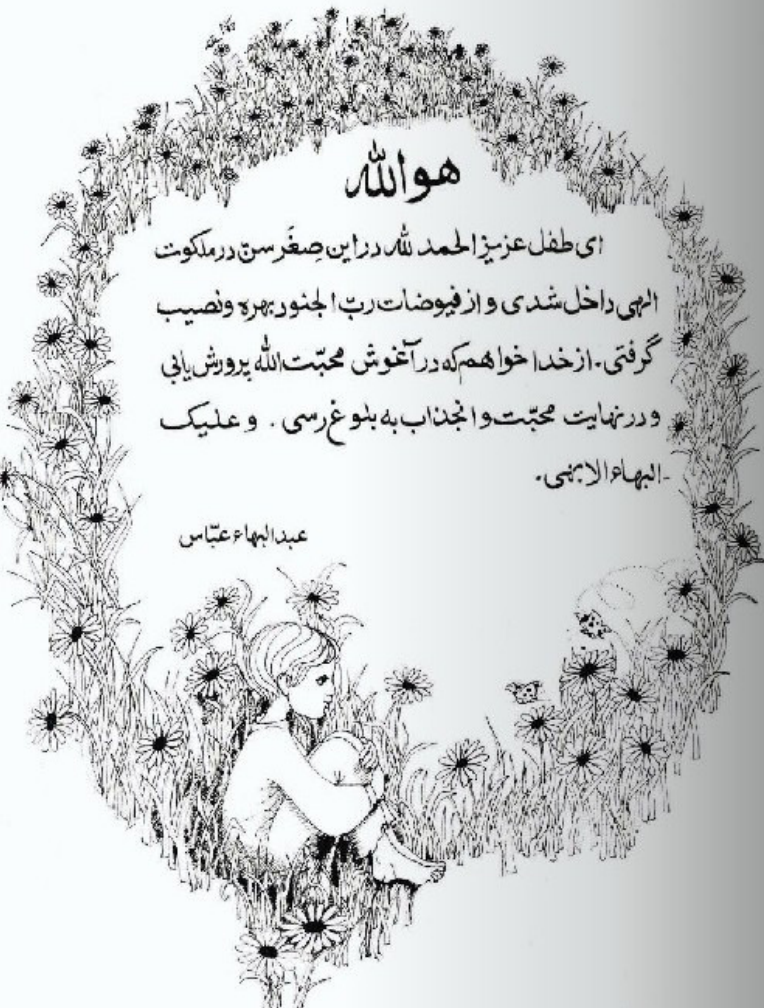 هواللّه
ای طفل عزیز الحمد للّه در این صِغَر سنّ در ملکوت
الهی داخل شدی و از فیوضات ربّ الجنود بهره و نصیب
گرفتی. از خدا خواهم که در آغوش محبّت اللّه پرورش یابی
و در نهایت محبّت و انجذاب به بلوغ رسی. و علیک
البهاء الابهی.
عبدالبهاء عبّاس